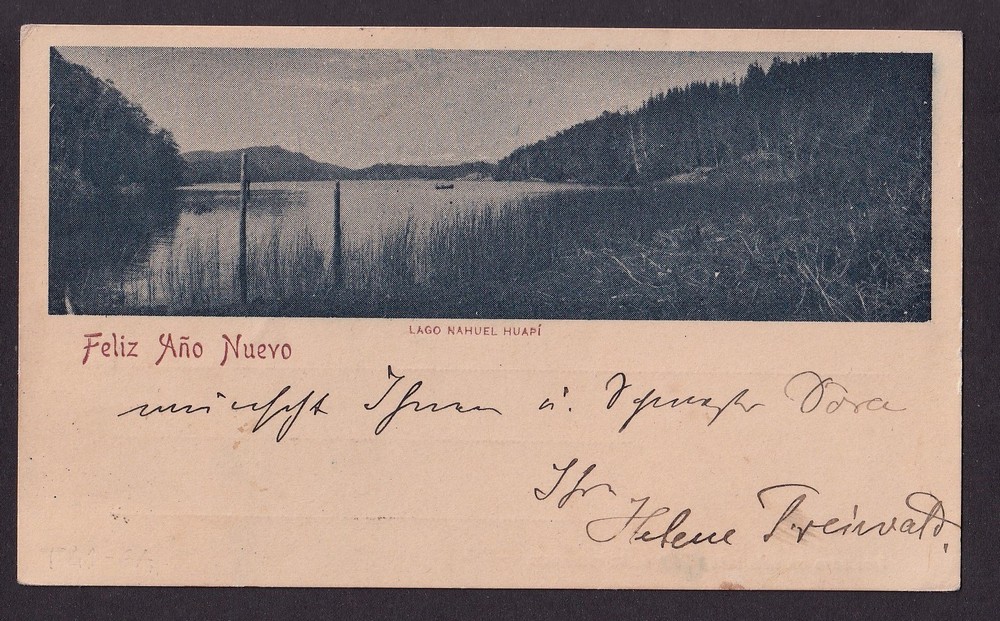 LAGO NAHUEL HUAPÍ
Feliz Año Nuevo
wünscht Ihnen u. Schwester Dora
Ihre
Helene Freiwald.